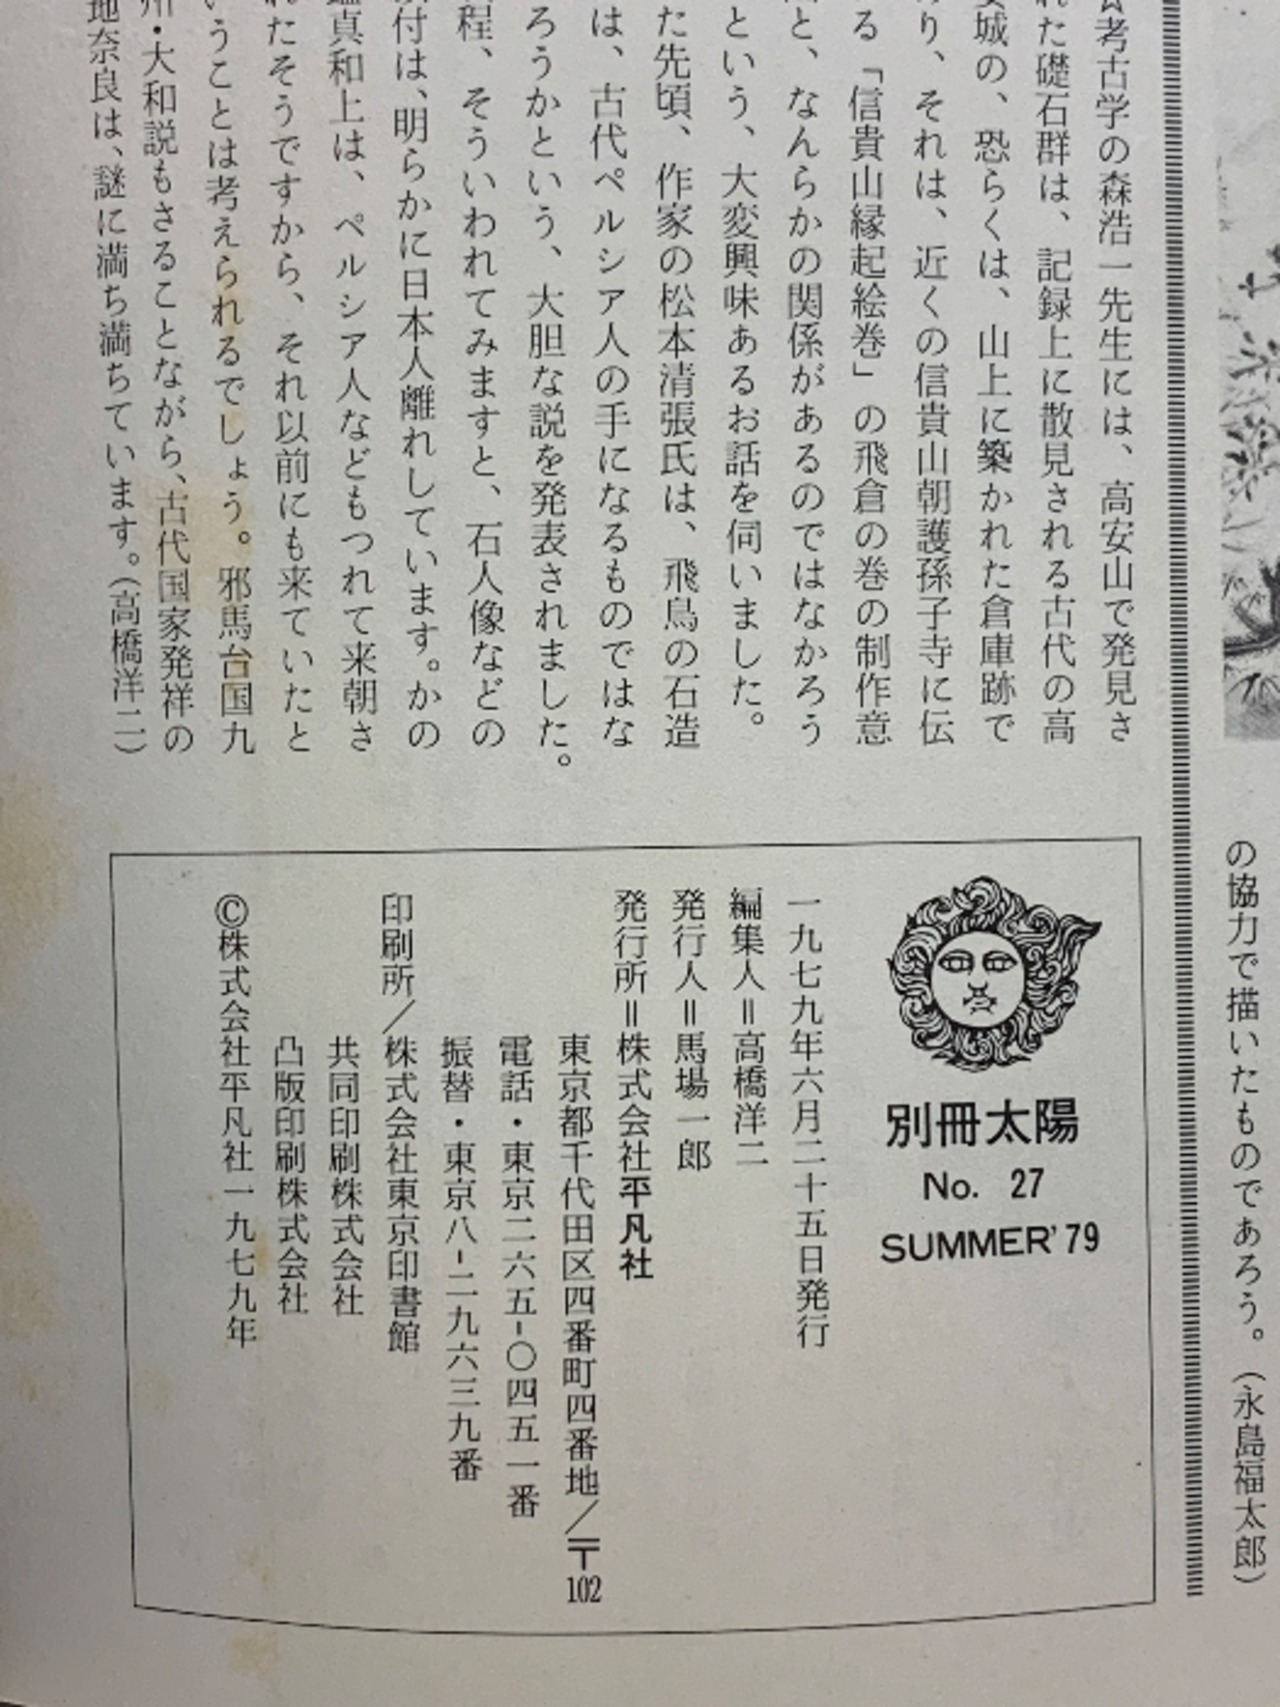 ☆考古学の森浩一先生には、高安山で発見さ
れた礎石群は、記録上に散見される古代の高
安城の、恐らくは、山上に築かれた倉庫跡で
り、それは、近くの信貴山朝護孫子寺に伝
る「信貴山縁起絵巻」の飛倉の巻の制作意
と、なんらかの関係があるのではなかろう
という、大変興味あるお話を伺いました。
た先頃、作家の松本清張氏は、飛鳥の石造
は、古代ペルシア人の手になるものではな
ろうかという、大胆な説を発表されました。
程、そういわれてみますと、石人像などの
付は、明らかに日本人離れしています。かの
鑑真和上は、ペルシア人などもつれて来朝さ
れたそうですから、それ以前にも来ていたと
うことは考えられるでしょう。邪馬台国九
州・大和説もさることながら、古代国家発祥の
地奈良は、謎に満ち満ちています。(高橋洋二)
の協力で描いたものであろう。(永島福太郎)
別冊太陽
No. 27
SUMMER'79
一九七九年六月二十五日発行
編集人=高橋洋二
発行人=馬場一郎
発行所=株式会社平凡社
東京都千代田区四番町四番地/〒102
電話・東京二六五-〇四五一番
振替・東京八-二九六三九番
印刷所/株式会社東京印書館
共同印刷株式会社
凸版印刷株式会社
©株式会社平凡社一九七九年